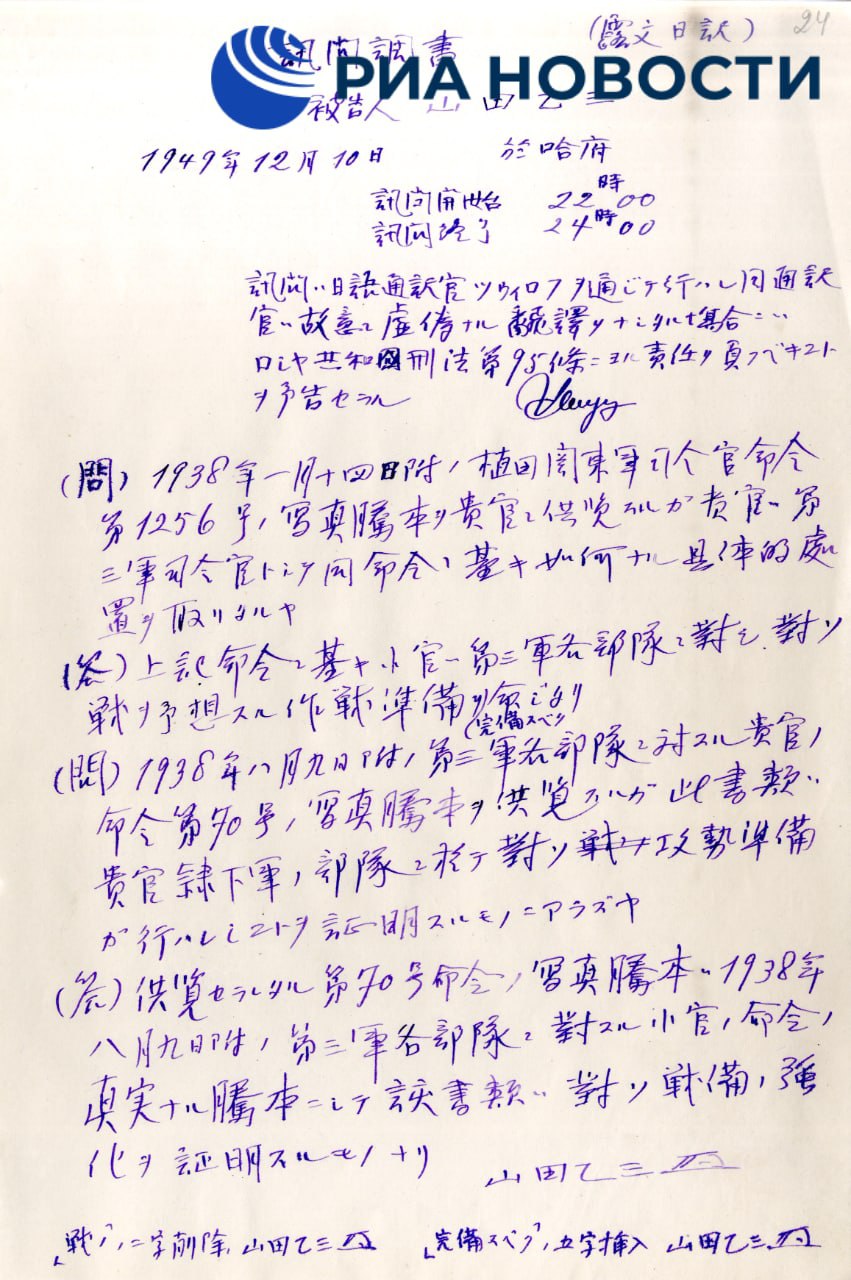 24
(露文日訳)
訊問調書
РИА НОВОСТИ
被告人 山田乙三
1949年12月10日 於哈府
訊問開始 22時00
訊問終了 24時00
訊問ハ日語通訳官ツウィロフヲ通ジテ行ハレ同通訳
官ハ故意ニ虚偽ナル飜譯ヲナシタル場合ニハ
ロシヤ共和國刑法第95條ニヨル責任ヲ負フベキコト
ヲ予告セラル
(問) 1938年一月十四日附ノ植田関東軍司令官命令
第1256号ノ写真謄本ヲ貴官ニ供覧スルガ貴官ハ第
三軍司令官トシテ同命令ニ基キ如何ナル具体的処
置ヲ取リタルヤ
(答) 上記命令ニ基キ小官ハ第三軍各部隊ニ對シ對ソ
戦ヲ予想スル作戦準備ヲ命ジタリ
(完備スベク
(問) 1938年八月九日附ノ第三軍各部隊ニ対スル貴官ノ
命令第70号ノ写真謄本ヲ供覧スルガ此書類ハ
貴官隷下軍ノ部隊ニ於テ對ソ戦ノ攻勢準備
ガ行ハレシコトヲ証明スルモノニアラズヤ
(答) 供覧セラレタル第70号命令ノ写真謄本ハ1938年
八月九日附ノ第三軍各部隊ニ對スル小官ノ命令ノ
真実ナル謄本ニシテ該書類ハ對ソ戦備ノ強
化ヲ証明スルモノナリ
山田乙三
「戦ノ」ノ二字削除 山田乙三 「完備スベク」ノ五字挿入 山田乙三